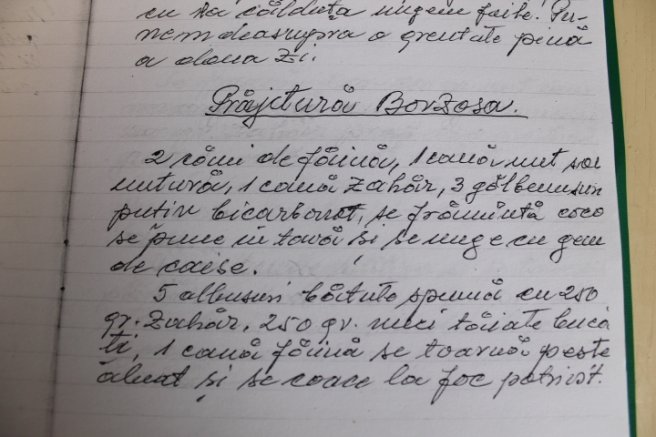 cu să căldută ungem foile. Pu-
nem deasupra o greutate pînă
a doua zi.
Prăjitură Borzosa.
2 căni de făină, 1 cană unt sau
untură, 1 cană zahăr, 3 gălbenusuri
putin bicarbonat, se frămîntă coca
se pune în tavă și se unge cu gem
de caise.
5 albusuri bătute spumă cu 250
gr. zahăr, 250 gr. nuci tăiate bucă
ti, 1 cană făină se toarnă peste
aluat și se coace la foc potrivit.